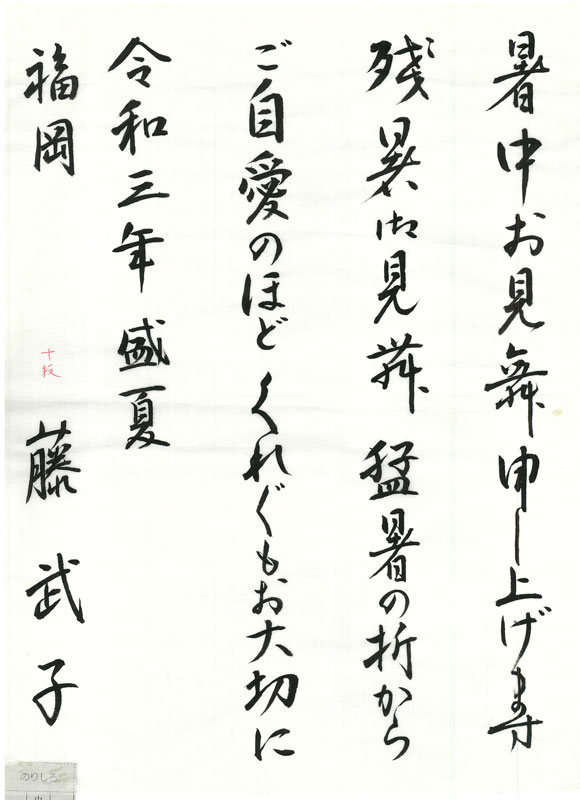 暑中お見舞申し上げます
残暑御見舞 猛暑の折から
ご自愛のほど くれぐもお大切に
令和三年 盛夏
福岡 十級 藤 武子
のりしろ